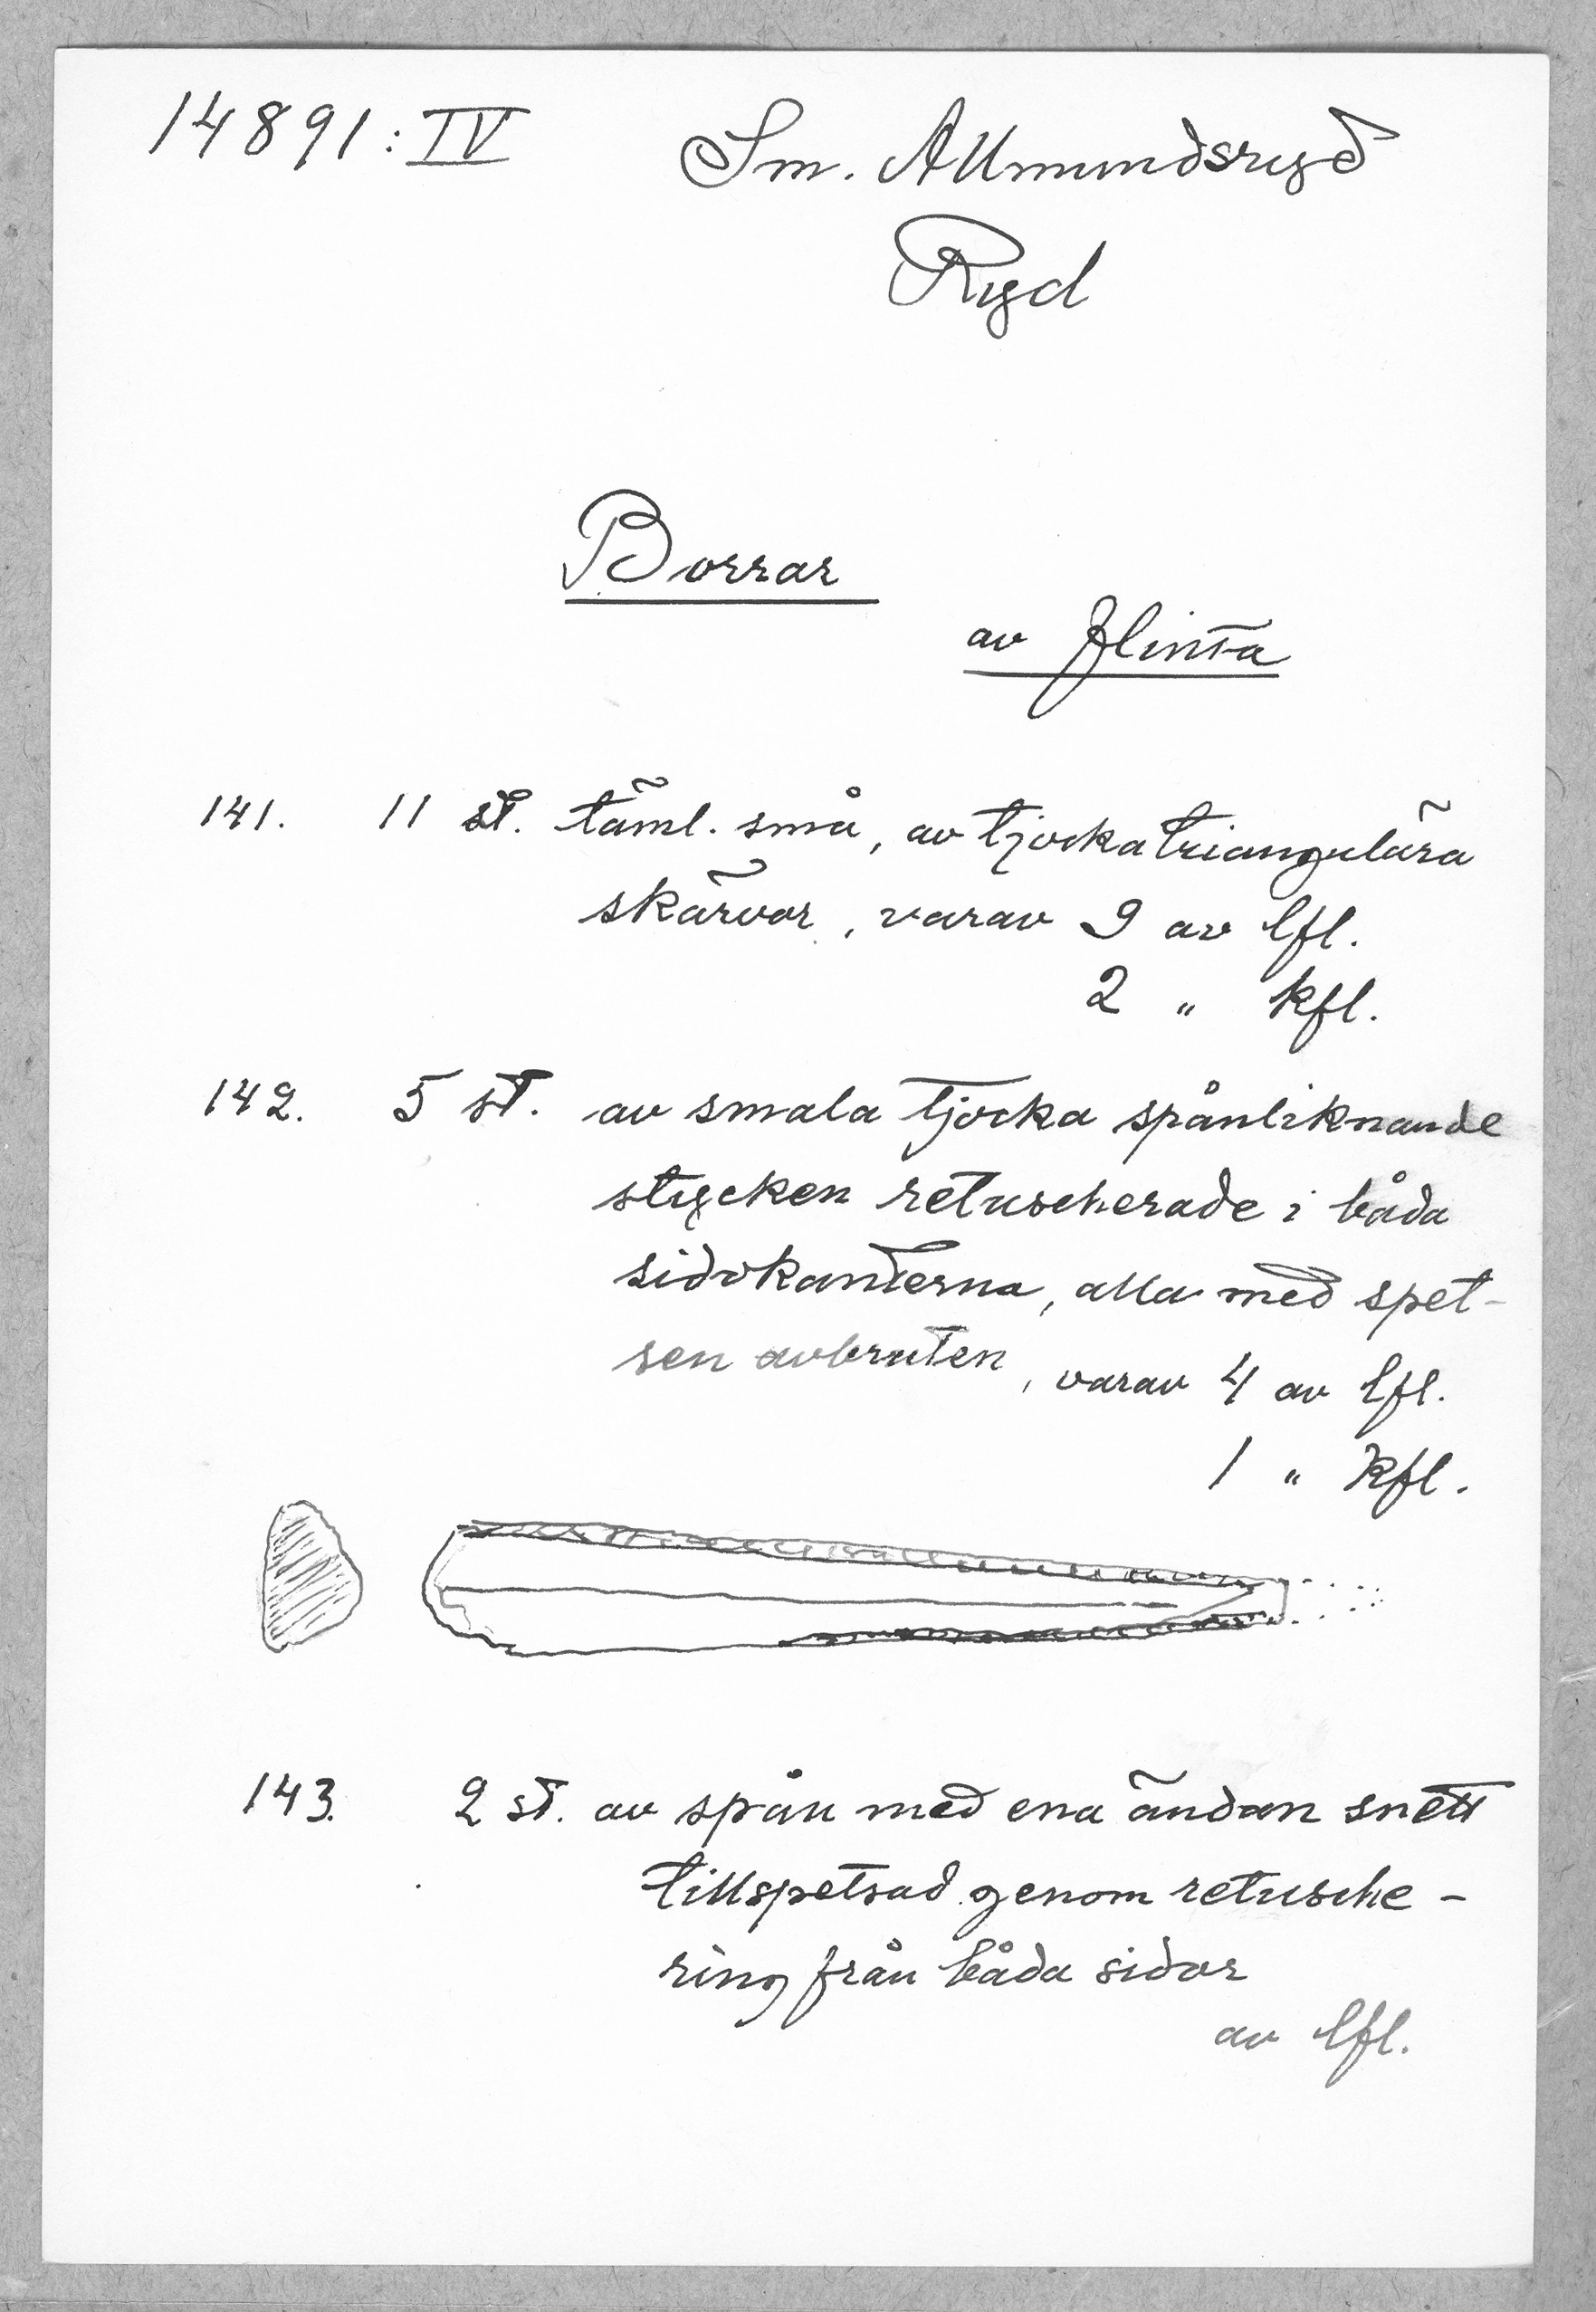 14891:IV
Sm. Allmundsryd
Ryd
Borrar
av flinta
141. 11 st. täml. små, av tjocka triangulära
skärvor, varav 9 av lfl.
2 " kfl.
142. 5 st. av smala tjocka spånliknande
stycken retuscherade i båda
sidokanterna, alla med spet-
sen avbruten, varav 4 av lfl.
1 " kfl.
143. 2 st. av spån med ena ändan snett
tillspetsad genom retusche-
ring från båda sidor
av lfl.